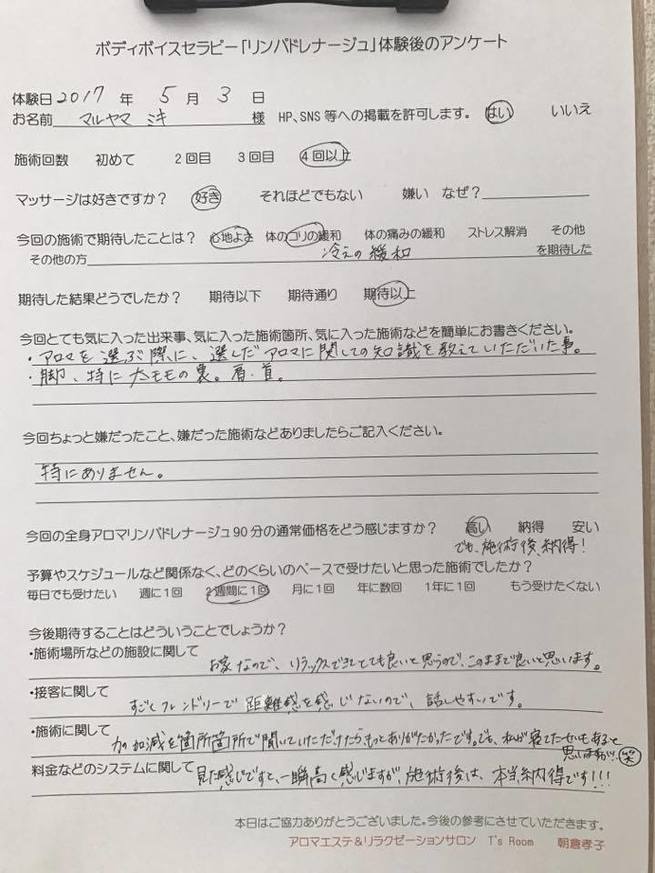 ボディボイスセラピー「リンパドレナージュ」体験後のアンケート
体験日 2017 年 5 月 3 日
お名前 マルヤマ ミキ 様 HP、SNS 等への掲載を許可します。 はい いいえ
施術回数 初めて 2回目 3回目 4回以上
マッサージは好きですか？ 好き それほどでもない 嫌い なぜ？
今回の施術で期待したことは？ 心地よさ 体のコリの緩和 体の痛みの緩和 ストレス解消 その他
その他の方 冷えの緩和 を期待した
期待した結果どうでしたか？ 期待以下 期待通り 期待以上
今回とても気に入った出来事、気に入った施術箇所、気に入った施術などを簡単にお書きください。
・アロマを選ぶ際に、選んだアロマに関しての知識を教えていただいた事。
・脚、特に太モモの裏。肩・首。
今回ちょっと嫌だったこと、嫌だった施術などありましたらご記入ください。
特にありません。
今回の全身アロマリンパドレナージュ90分の通常価格をどう感じますか？ 高い 納得 安い
でも、施術後納得！
予算やスケジュールなど関係なく、どのくらいのペースで受けたいと思った施術でしたか？
毎日でも受けたい 週に1回 2週間に1回 月に1回 年に数回 1年に1回 もう受けたくない
今後期待することはどういうことでしょうか？
・施術場所などの施設に関して お家なので、リラックスできてとても良いと思うので、このままで良いと思います。
・接客に関して すごくフレンドリーで距離感を感じないので、話しやすいです。
・施術に関して 力加減を箇所箇所で聞いていただけたらもっとありがたかったです。でも、私が寝てたせいもあると
思いますが!! 笑
料金などのシステムに関して 見た感じですと、一瞬高く感じますが、施術後は、本当納得です!!!
本日はご協力ありがとうございました。今後の参考にさせていただきます。
アロマエステ＆リラクゼーションサロン T's Room 朝倉孝子